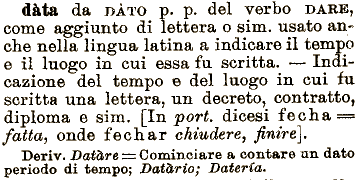 dàta da DÀTO p. p. del verbo DARE,
come aggiunto di lettera o sim. usato an-
che nella lingua latina a indicare il tempo
e il luogo in cui essa fu scritta. — Indi-
cazione del tempo e del luogo in cui fu
scritta una lettera, un decreto, contratto,
diploma e sim. [In port. dicesi fecha =
fatta, onde fechar chiudere, finire].
Deriv. Datàre = Cominciare a contare un dato
periodo di tempo; Datàrio; Daterìa.